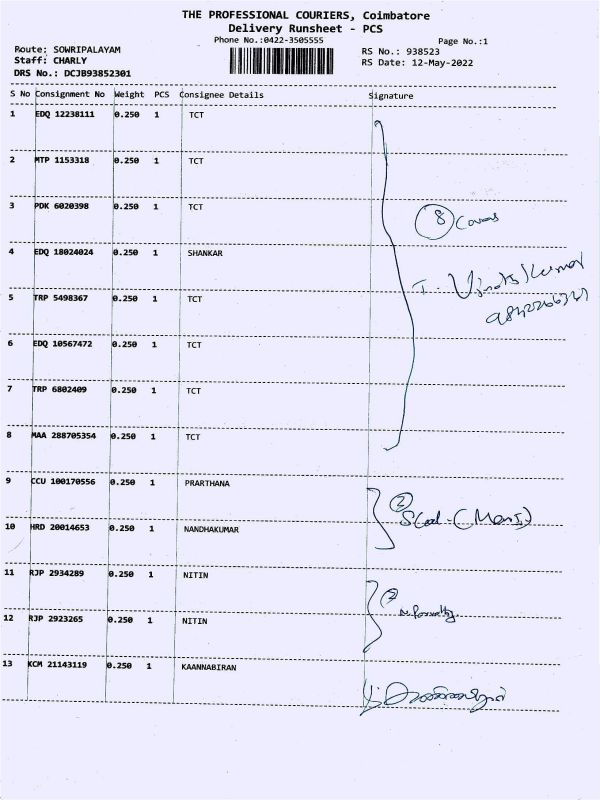 THE PROFESSIONAL COURIERS, Coimbatore
Delivery Runsheet - PCS
Phone No.:0422-3505555
Page No.:1
Route: SOWRIPALAYAM
RS No.: 938523
Staff: CHARLY
RS Date: 12-May-2022
DRS No.: DCJB93852301
S No Consignment No Weight PCS Consignee Details Signature
1 EDQ 12238111 0.250 1 TCT
2 MTP 1153318 0.250 1 TCT
3 PDK 6020398 0.250 1 TCT
8
4 EDQ 18024024 0.250 1 SHANKAR
5 TRP 5498367 0.250 1 TCT
6 EDQ 10567472 0.250 1 TCT
7 TRP 6802409 0.250 1 TCT
8 MAA 288705354 0.250 1 TCT
9 CCU 100170556 0.250 1 PRARTHANA
2
10 HRD 20014653 0.250 1 NANDHAKUMAR
11 RJP 2934289 0.250 1 NITIN
2
12 RJP 2923265 0.250 1 NITIN
13 KCM 21143119 0.250 1 KAANNABIRAN